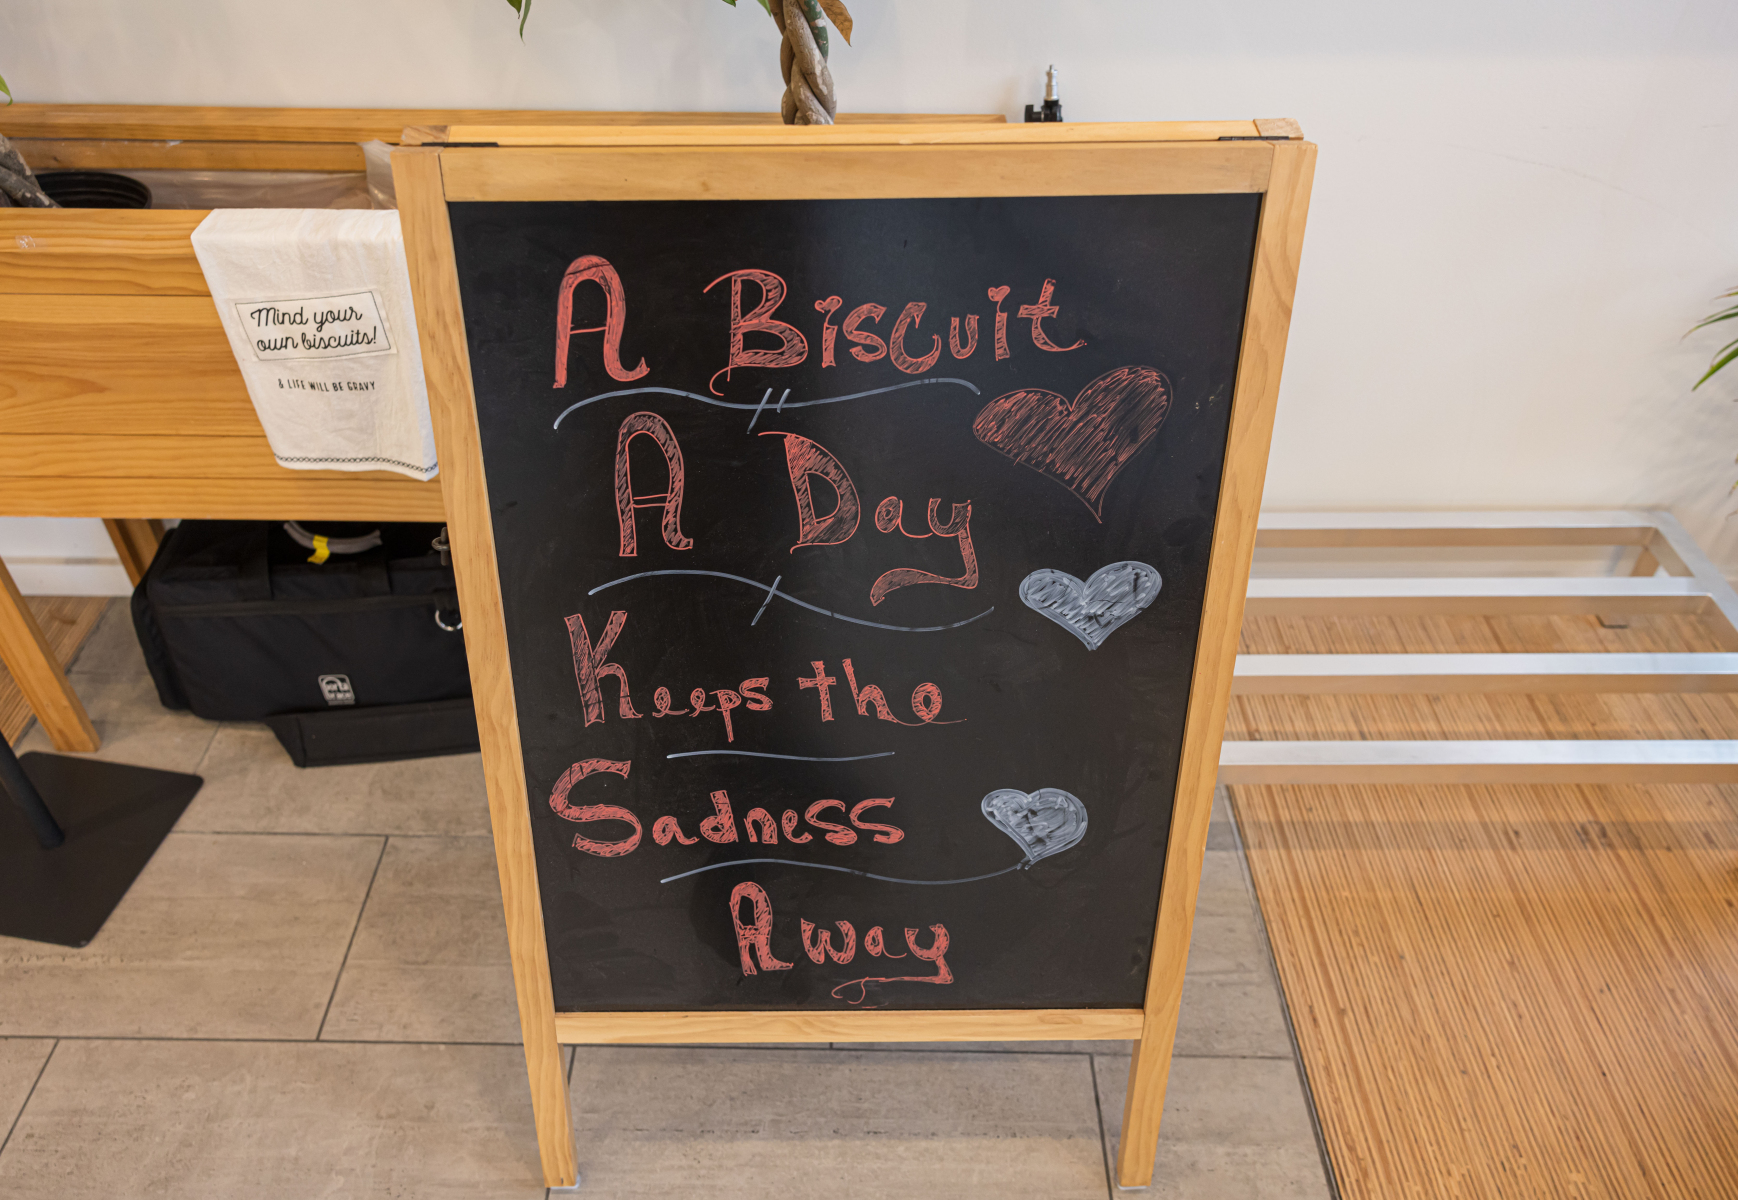 A Biscuit
A Day
Keeps the
Sadness
Away
Mind your
own biscuits!
& LIFE WILL BE GRAVY